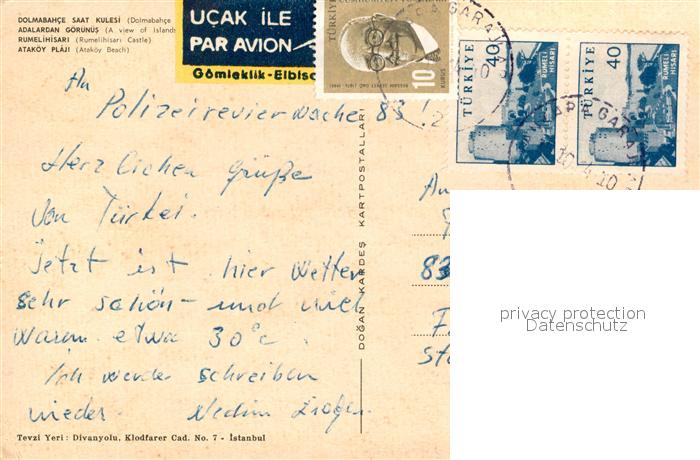 DOLMABAHÇE SAAT KULESİ (Dolmabahçe
ADALARDAN GÖRÜNÜŞ (A view of Islands
RUMELİHİSARI (Rumelihisarı Castle)
ATAKÖY PLÂJI (Ataköy Beach)
UÇAK İLE
PAR AVION
Gömleklik-Elbise
TÜRKİYE CUMHURİYETİ
10
KURUŞ
TÜRKİYE
40
RUMELİ HİSARI
TÜRKİYE
40
RUMELİ HİSARI
GARAJ
An
Polizeirevierwache 83!
Herzlichen Grüße
von Türkei.
Jetzt ist hier Wetter
sehr schön - und viel
warem etwa 30°c.
Ich werde schreiben
wieder. Nedim
An
83
DOĞAN KARDEŞ KARTPOSTALLARI
privacy protection
Datenschutz
Tevzi Yeri : Divanyolu, Klodfarer Cad. No. 7 - İstanbul